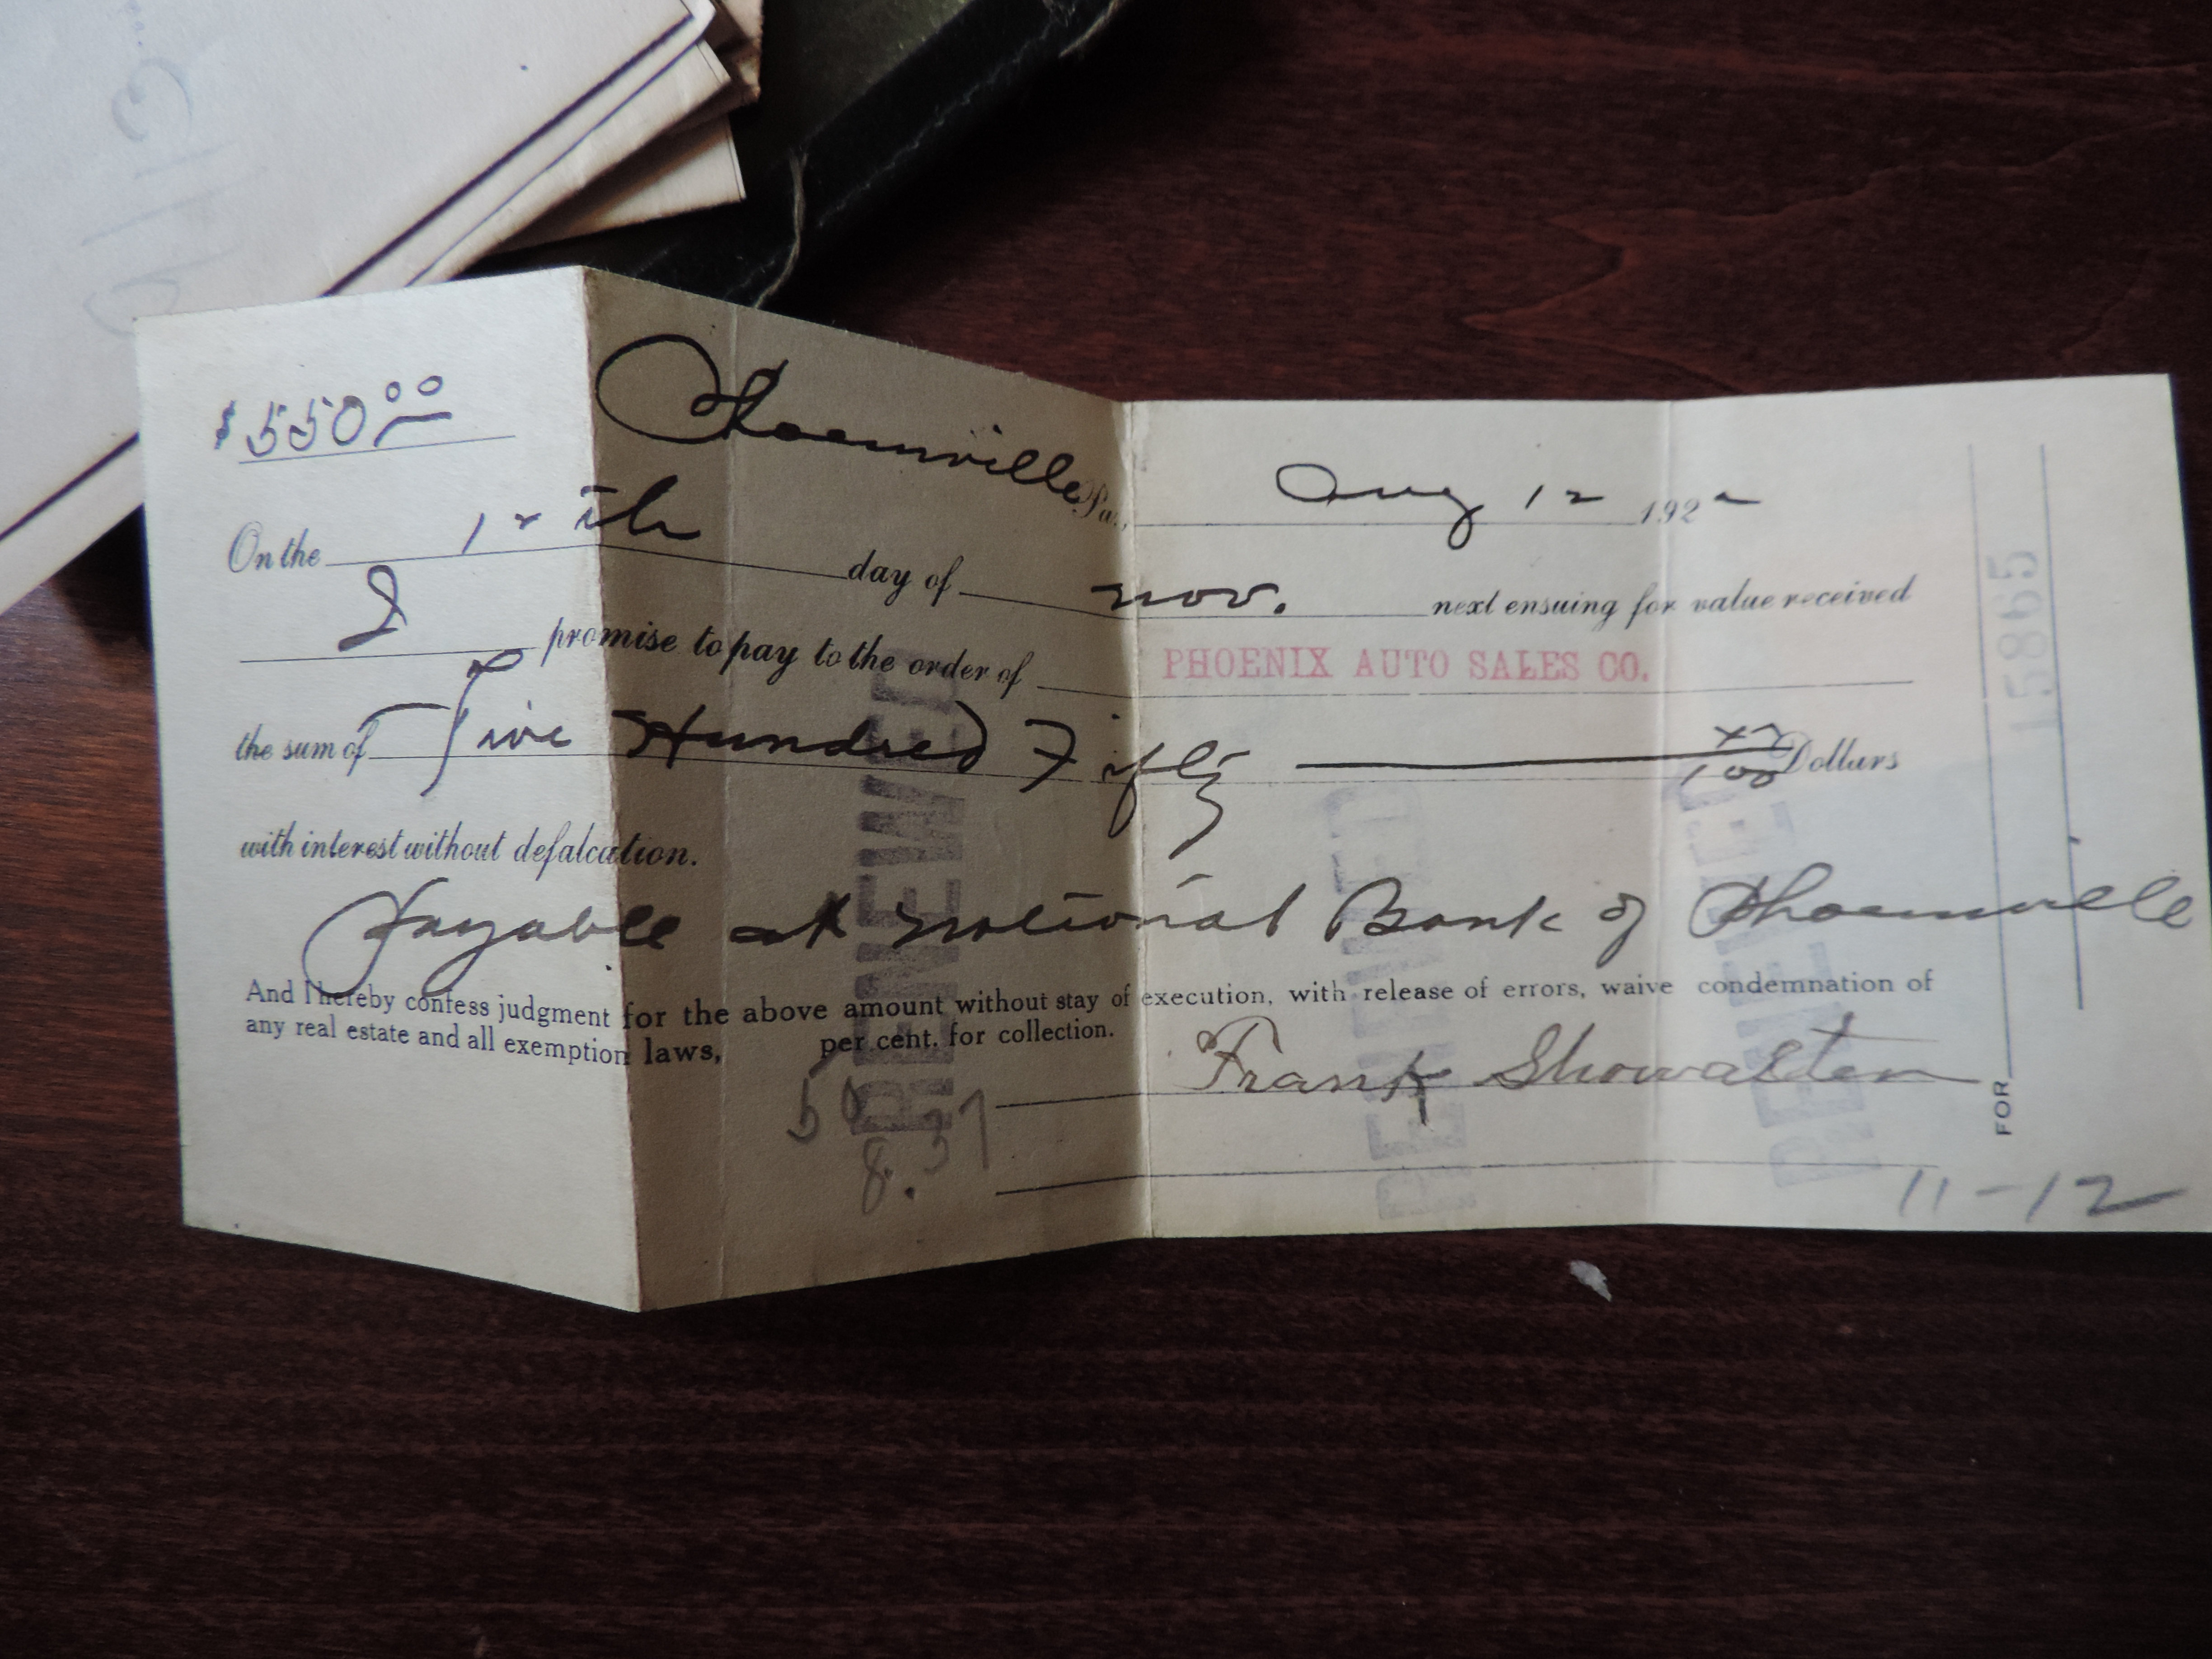 $550.00
Phoenixville Pa., Aug 12 1922
On the 12th day of Nov. next ensuing for value received
I promise to pay to the order of PHOENIX AUTO SALES CO.
the sum of Five Hundred Fifty xx/100 Dollars
with interest without defalcation.
Payable at National Bank of Phoenixville
And I hereby confess judgment for the above amount without stay of execution, with release of errors, waive condemnation of
any real estate and all exemption laws, per cent. for collection.
Frank Showalter
50
8.37
11-12
FOR
15865
RENEWED
RENEWED
RENEWED